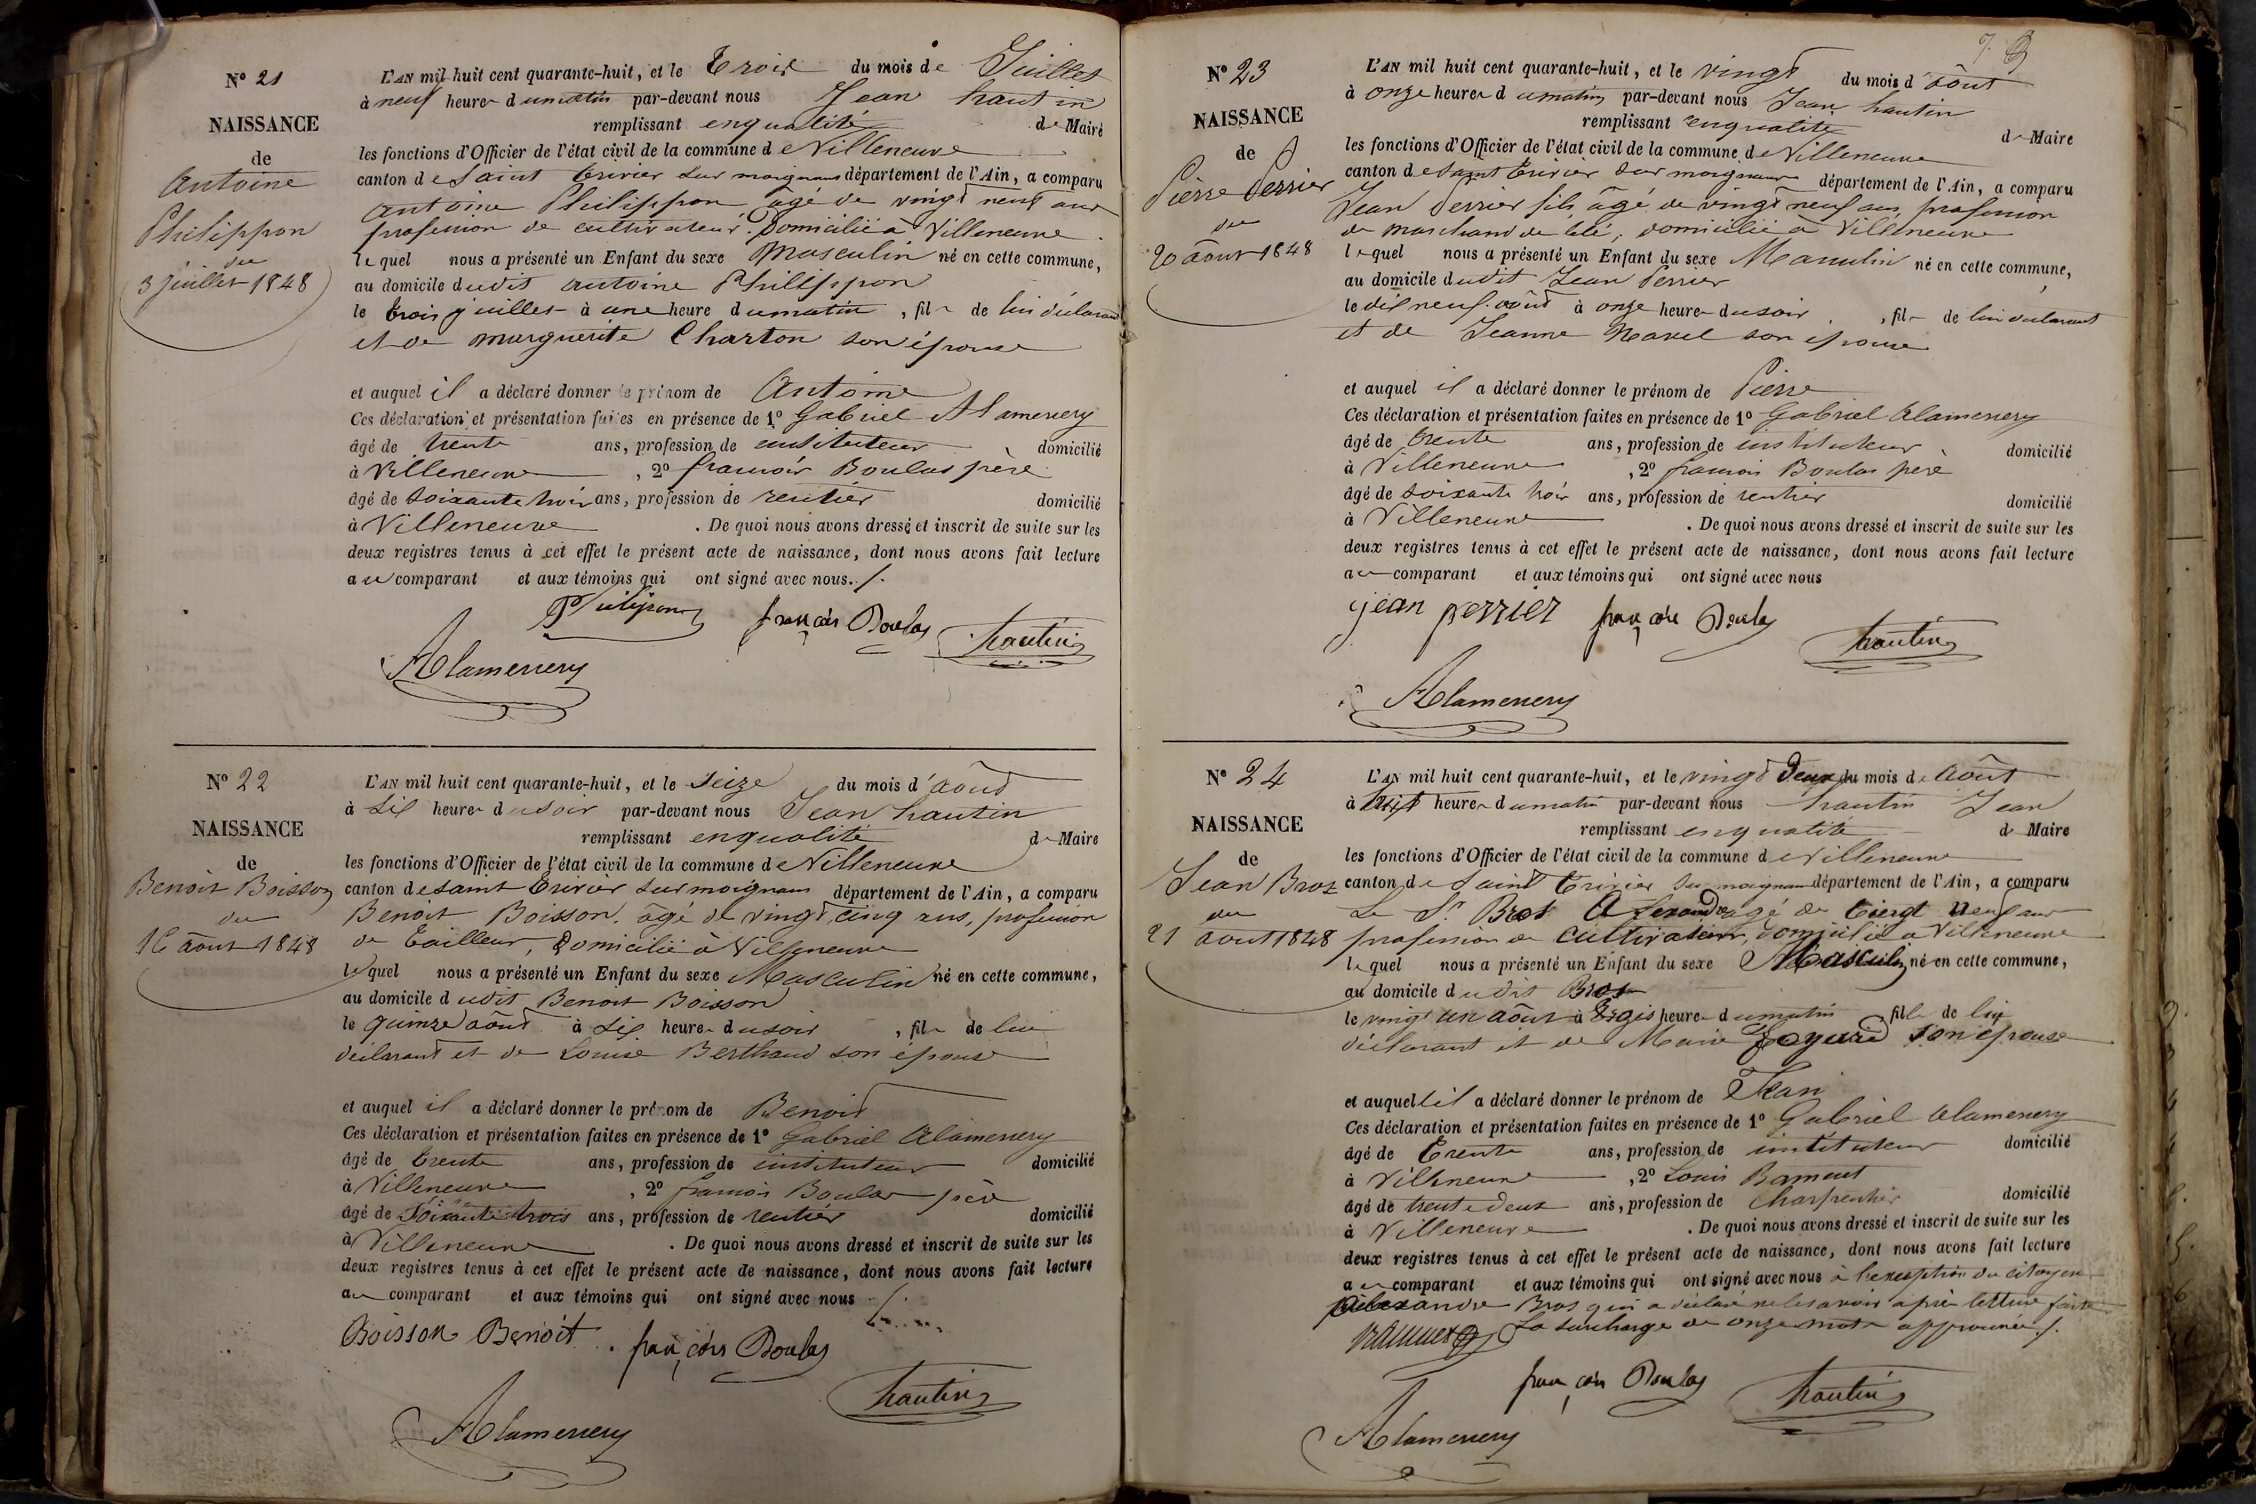 N° 21
NAISSANCE
de
Antoine
Philippon
du
3 juillet 1848
L'AN mil huit cent quarante-huit, et le trois du mois de Juillet
à neuf heures du matin par-devant nous Jean hautin
remplissant en qualité de Maire
les fonctions d'Officier de l'état civil de la commune de Villeneuve
canton de Saint trivier sur moignans département de l'Ain, a comparu
antoine Philippon âgé de vingt neuf ans
profession de cultivateur. Domicilié à Villeneuve
lequel nous a présenté un Enfant du sexe Masculin né en cette commune,
au domicile dudit antoine Philippon
le trois juillet à une heure du matin, fils de lui déclarant
et de marguerite Charton son épouse
et auquel il a déclaré donner le prénom de Antoine
Ces déclaration et présentation faites en présence de 1° Gabriel Alamercery
âgé de trente ans, profession de instituteur domicilié
à Villeneuve, 2° françois Boulas père
âgé de soixante trois ans, profession de rentier domicilié
à Villeneuve. De quoi nous avons dressé et inscrit de suite sur les
deux registres tenus à cet effet le présent acte de naissance, dont nous avons fait lecture
au comparant et aux témoins qui ont signé avec nous./.
Philipon françois Boulas hautin
Alamercery
N° 22
NAISSANCE
de
Benoit Boisson
du
16 août 1848
L'AN mil huit cent quarante-huit, et le seize du mois d'août
à six heures du soir par-devant nous Jean hautin
remplissant en qualité de Maire
les fonctions d'Officier de l'état civil de la commune de Villeneuve
canton de saint trivier sur moignans département de l'Ain, a comparu
Benoit Boisson. âgé de vingt cinq ans, profession
de tailleur, Domicilié à Villeneuve
lequel nous a présenté un Enfant du sexe Masculin né en cette commune,
au domicile dudit Benoit Boisson
le quinze août à six heures du soir, fils de lui
déclarant et de Louise Berthaud son épouse
et auquel il a déclaré donner le prénom de Benoit
Ces déclaration et présentation faites en présence de 1° Gabriel Alamercery
âgé de trente ans, profession de instituteur domicilié
à Villeneuve, 2° françois Boulas père
âgé de soixante trois ans, profession de rentier domicilié
à Villeneuve. De quoi nous avons dressé et inscrit de suite sur les
deux registres tenus à cet effet le présent acte de naissance, dont nous avons fait lecture
au comparant et aux témoins qui ont signé avec nous ./.
Boisson Benoit. françois Boulas
hautin
Alamercery
N° 23
NAISSANCE
de
Pierre Perrier
du
20 août 1848
L'AN mil huit cent quarante-huit, et le vingt du mois d'août
à onze heures du matin par-devant nous Jean hautin
remplissant en qualité de Maire
les fonctions d'Officier de l'état civil de la commune de Villeneuve
canton de saint trivier sur moignans département de l'Ain, a comparu
Jean Perrier fils, âgé de vingt neuf ans, profession
de marchand de blé, domicilié à Villeneuve
lequel nous a présenté un Enfant du sexe Masculin né en cette commune,
au domicile dudit Jean Perrier
le dix neuf août à onze heures du soir, fils de lui déclarant
et de Jeanne son épouse
et auquel il a déclaré donner le prénom de Pierre
Ces déclaration et présentation faites en présence de 1° Gabriel Alamercery
âgé de trente ans, profession de instituteur domicilié
à Villeneuve, 2° françois Boulas père
âgé de soixante trois ans, profession de rentier domicilié
à Villeneuve. De quoi nous avons dressé et inscrit de suite sur les
deux registres tenus à cet effet le présent acte de naissance, dont nous avons fait lecture
au comparant et aux témoins qui ont signé avec nous
jean perrier françois Boulas hautin
Alamercery
N° 24
NAISSANCE
de
Jean Bros
du
21 août 1848
L'AN mil huit cent quarante-huit, et le vingt Deux du mois d'Août
à huit heures du matin par-devant nous hautin Jean
remplissant en qualité de Maire
les fonctions d'Officier de l'état civil de la commune de Villeneuve
canton de Saint trivier sur moignans département de l'Ain, a comparu
Le Sr Bros Alexandre âgé de neuf ans
profession de cultivateur, domicilié à Villeneuve
lequel nous a présenté un Enfant du sexe Masculin né en cette commune,
au domicile dudit Bros
le vingt un août à trois heures du matin, fils de lui
déclarant et de Marie son épouse
et auquel il a déclaré donner le prénom de Jean
Ces déclaration et présentation faites en présence de 1° Gabriel Alamercery
âgé de trente ans, profession de instituteur domicilié
à Villeneuve, 2° Louis
âgé de trente deux ans, profession de Charpentier domicilié
à Villeneuve. De quoi nous avons dressé et inscrit de suite sur les
deux registres tenus à cet effet le présent acte de naissance, dont nous avons fait lecture
au comparant et aux témoins qui ont signé avec nous à l'exception du citoyen
alexandre Bros qui a déclaré ne le savoir après lecture faite
La surcharge de onze mots approuvée./.
françois Boulas hautin
Alamercery